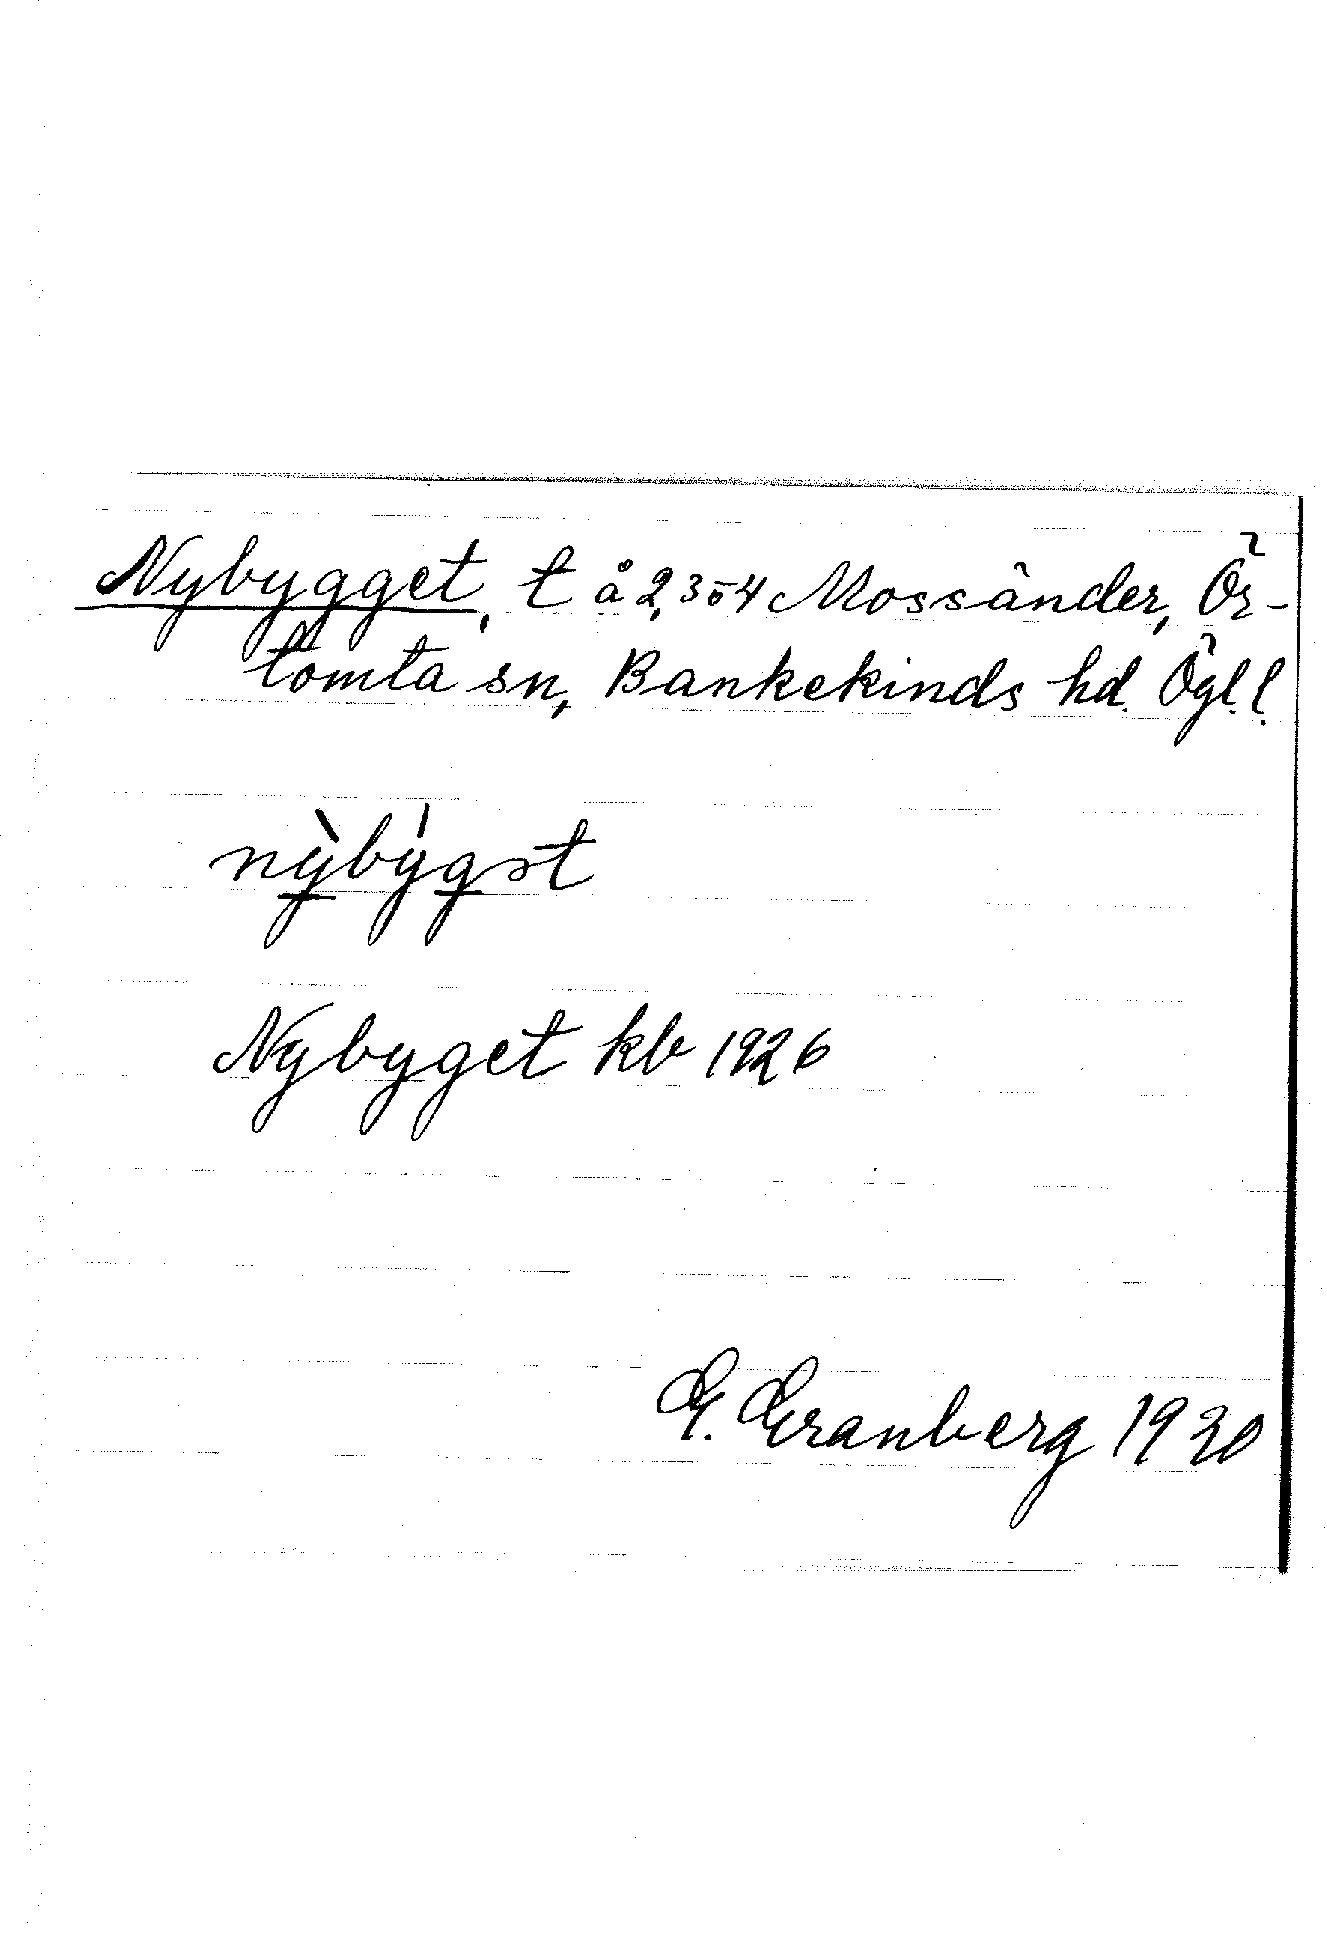 Nybygget, t å 2, 3 o 4 Mossänder, Ör-
tomta sn, Bankekinds hd. Ögl. l.
nỳbýgət
Nybyget kb 1926
G. Granberg 1930